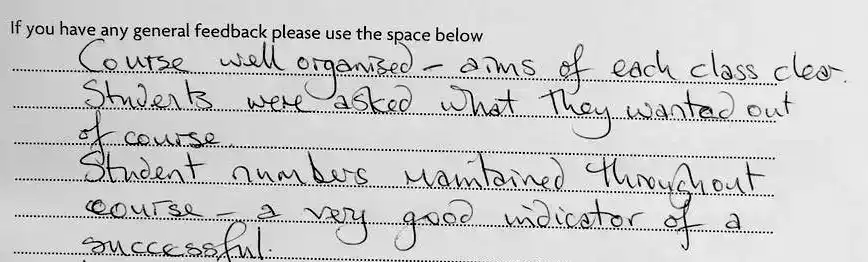 If you have any general feedback please use the space below
Course well organised - aims of each class clear.
Students were asked what they wanted out
of course.
Student numbers maintained throughout
course - a very good indicator of a
successful.